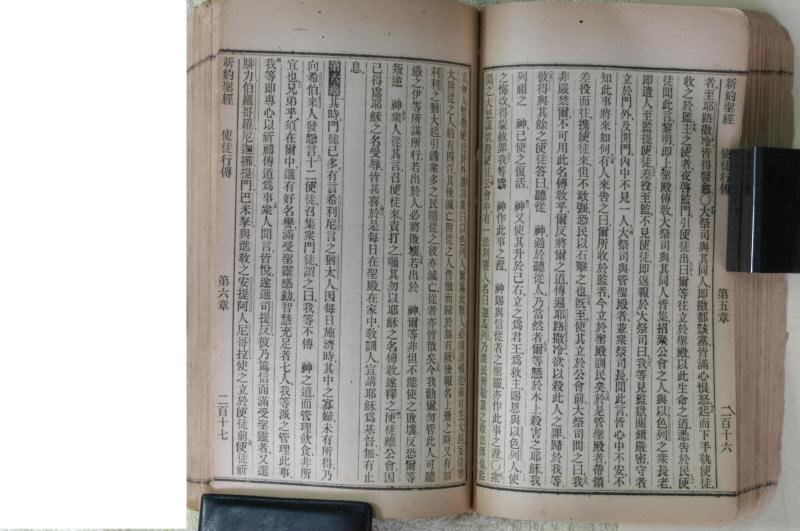 新約聖經 使徒行傳 第五章 二百十六
者至耶路撒冷皆得醫愈〇大祭司與其同人即撒都該黨皆滿心恨怒起而下手執使徒
收之於監主之使者夜啓監門引使徒出曰爾等往立於聖殿以此生命之道悉告於民使
徒聞此言黎明即上聖殿傳敎大祭司與其同人皆集招衆公會之人與以色列之衆長老
即遣人至監提使徒差役至監不見使徒即返報於大祭司曰我等見監獄關鎖嚴密守者
立於門外及開門內中不見一人大祭司與管聖殿者並衆祭司長聞此言皆心中不安不
知此事將來如何有人來吿之曰爾所收於監者今立於聖殿訓民矣於是管聖殿者帶領
差役而往携使徒來但不敢强恐民以石擊之也旣至使其立於公會前大祭司問之曰我
非嚴禁爾不可用此名傳敎乎爾反將爾之道傳遍耶路撒冷欲以殺此人之罪歸於我等
彼得與其餘之使徒答曰聽從 神過於聽從人乃當然者爾等懸於木上殺害之耶穌我
列祖之 神已使之復活 神又使其升於己右立之爲君王爲救主賜恩與以色列人使
之悔改得蒙赦罪我等爲 神作此事之證 神賜與信從者之聖靈亦作此事之證〇衆
利利之猶大起引誘衆多之民隨從之彼亦滅亡從者亦皆散矣今我勸爾勿管此人可聽
憑之伊等所謀所行若出於人必將敗壞若出於 神爾等非但不能使之敗壞反恐爾等
叛逆 神衆人從其言召使徒來責打之囑其勿以耶穌之名傳敎遂釋之使徒離公會因
己得爲耶穌之名受辱皆甚喜於是每日在聖殿在家中敎訓人宣講耶穌爲基督無有止
息
第六章其時門徒已多有言希利尼言之猶太人因每日施濟時其中之寡婦未有所得乃
向希伯來人發怨言十二使徒召集衆門徒謂之曰我等不傳 神之道而管理飮食非所
宜也兄弟乎須在爾中選有好名譽滿受聖靈感動智慧充足者七人我等派之管理此事
我等即專心以祈禱傳道爲事衆人聞言皆悅遂選司提反彼乃篤信而滿受聖靈者又選
腓力伯羅哥羅尼迦挪提門巴米拏與進敎之安提阿人尼哥拉使之立於使徒前使徒祈
新約聖經 使徒行傳 第六章 二百十七